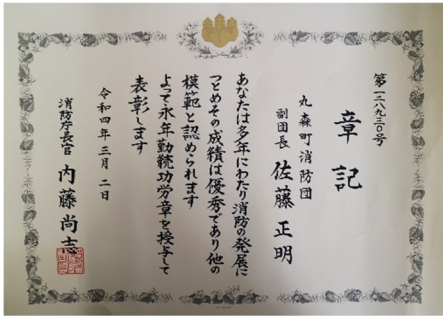 第一二八九三〇号
章記
丸森町消防団
副団長 佐藤正明
あなたは多年にわたり消防の発展に
つとめその成績は優秀であり他の
模範と認められます
よって永年勤続功労章を授与して
表彰します
令和四年三月二日
消防庁長官 内藤尚志